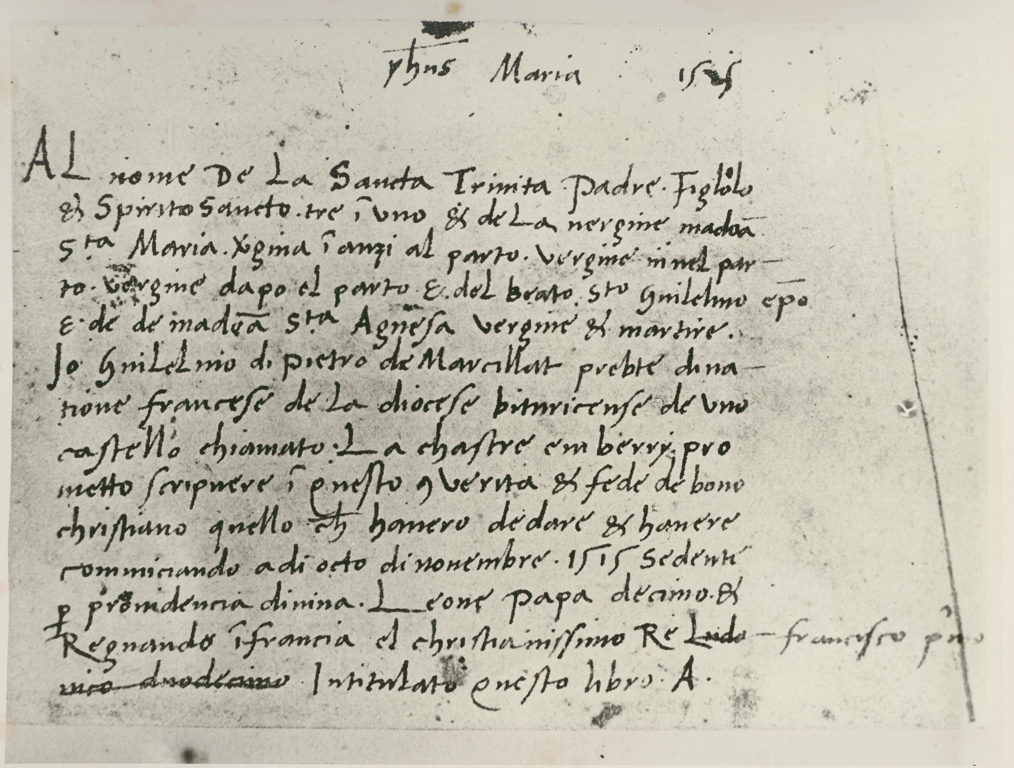 yhus Maria 1515
AL nome De La Sancta Trinita Padre. Figlolo
& Spirito Sancto. tre ī uno & de La vergine madōa
Sta Maria. v̄gina ī anzi al parto. vergine in nel par-
to. vergine dapo el parto. &. del beato. Sto Guilelmo ep̄o
&. de de madōa Sta Agnesa vergine & martire.
Jo Guilelmo di Pietro de Marcillat prebte di na-
tione francese de La diocese bituricense de uno
castello chiamato. La chastre em berry. pro
metto scripuere ī questo ꝯ verita & fede de bono
christiano quello ch̄ havero de dare & havere
cominciando a di octo di novembre. 1515 Sedente
ꝑ providencia divina. Leone Papa decimo. &
Regnando ī francia el christianissimo Re Ludo- francisco pͥmo
vico duodecimo Intitulato questo libro. A.